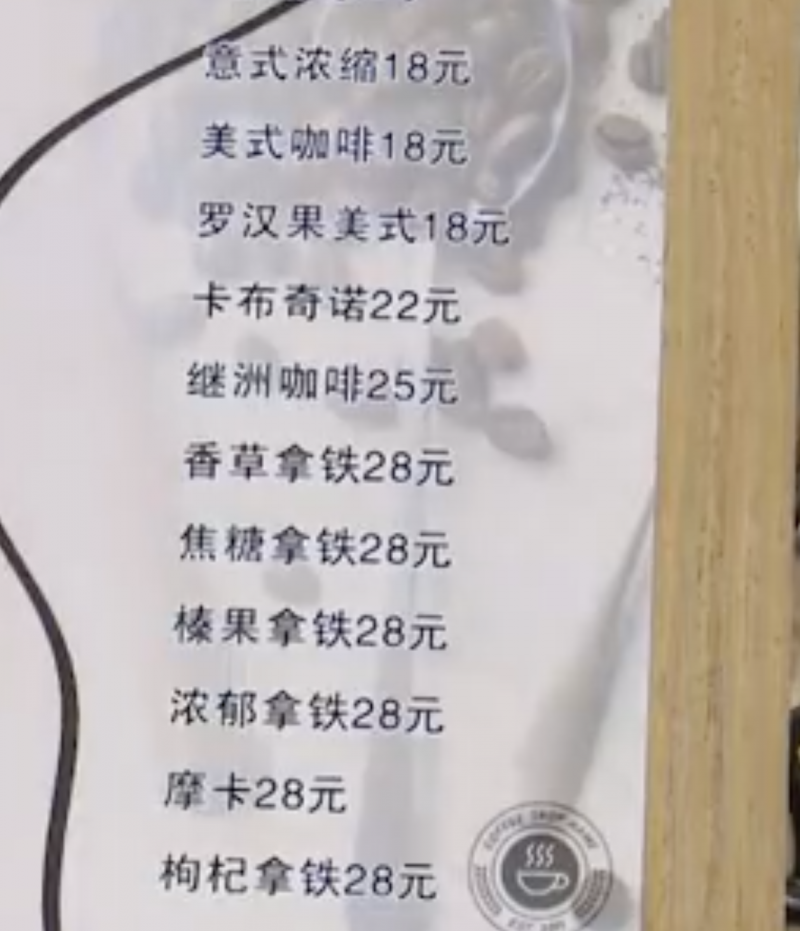 意式浓缩18元
美式咖啡18元
罗汉果美式18元
卡布奇诺22元
继洲咖啡25元
香草拿铁28元
焦糖拿铁28元
榛果拿铁28元
浓郁拿铁28元
摩卡28元
枸杞拿铁28元
COFFEE SHOP NAME